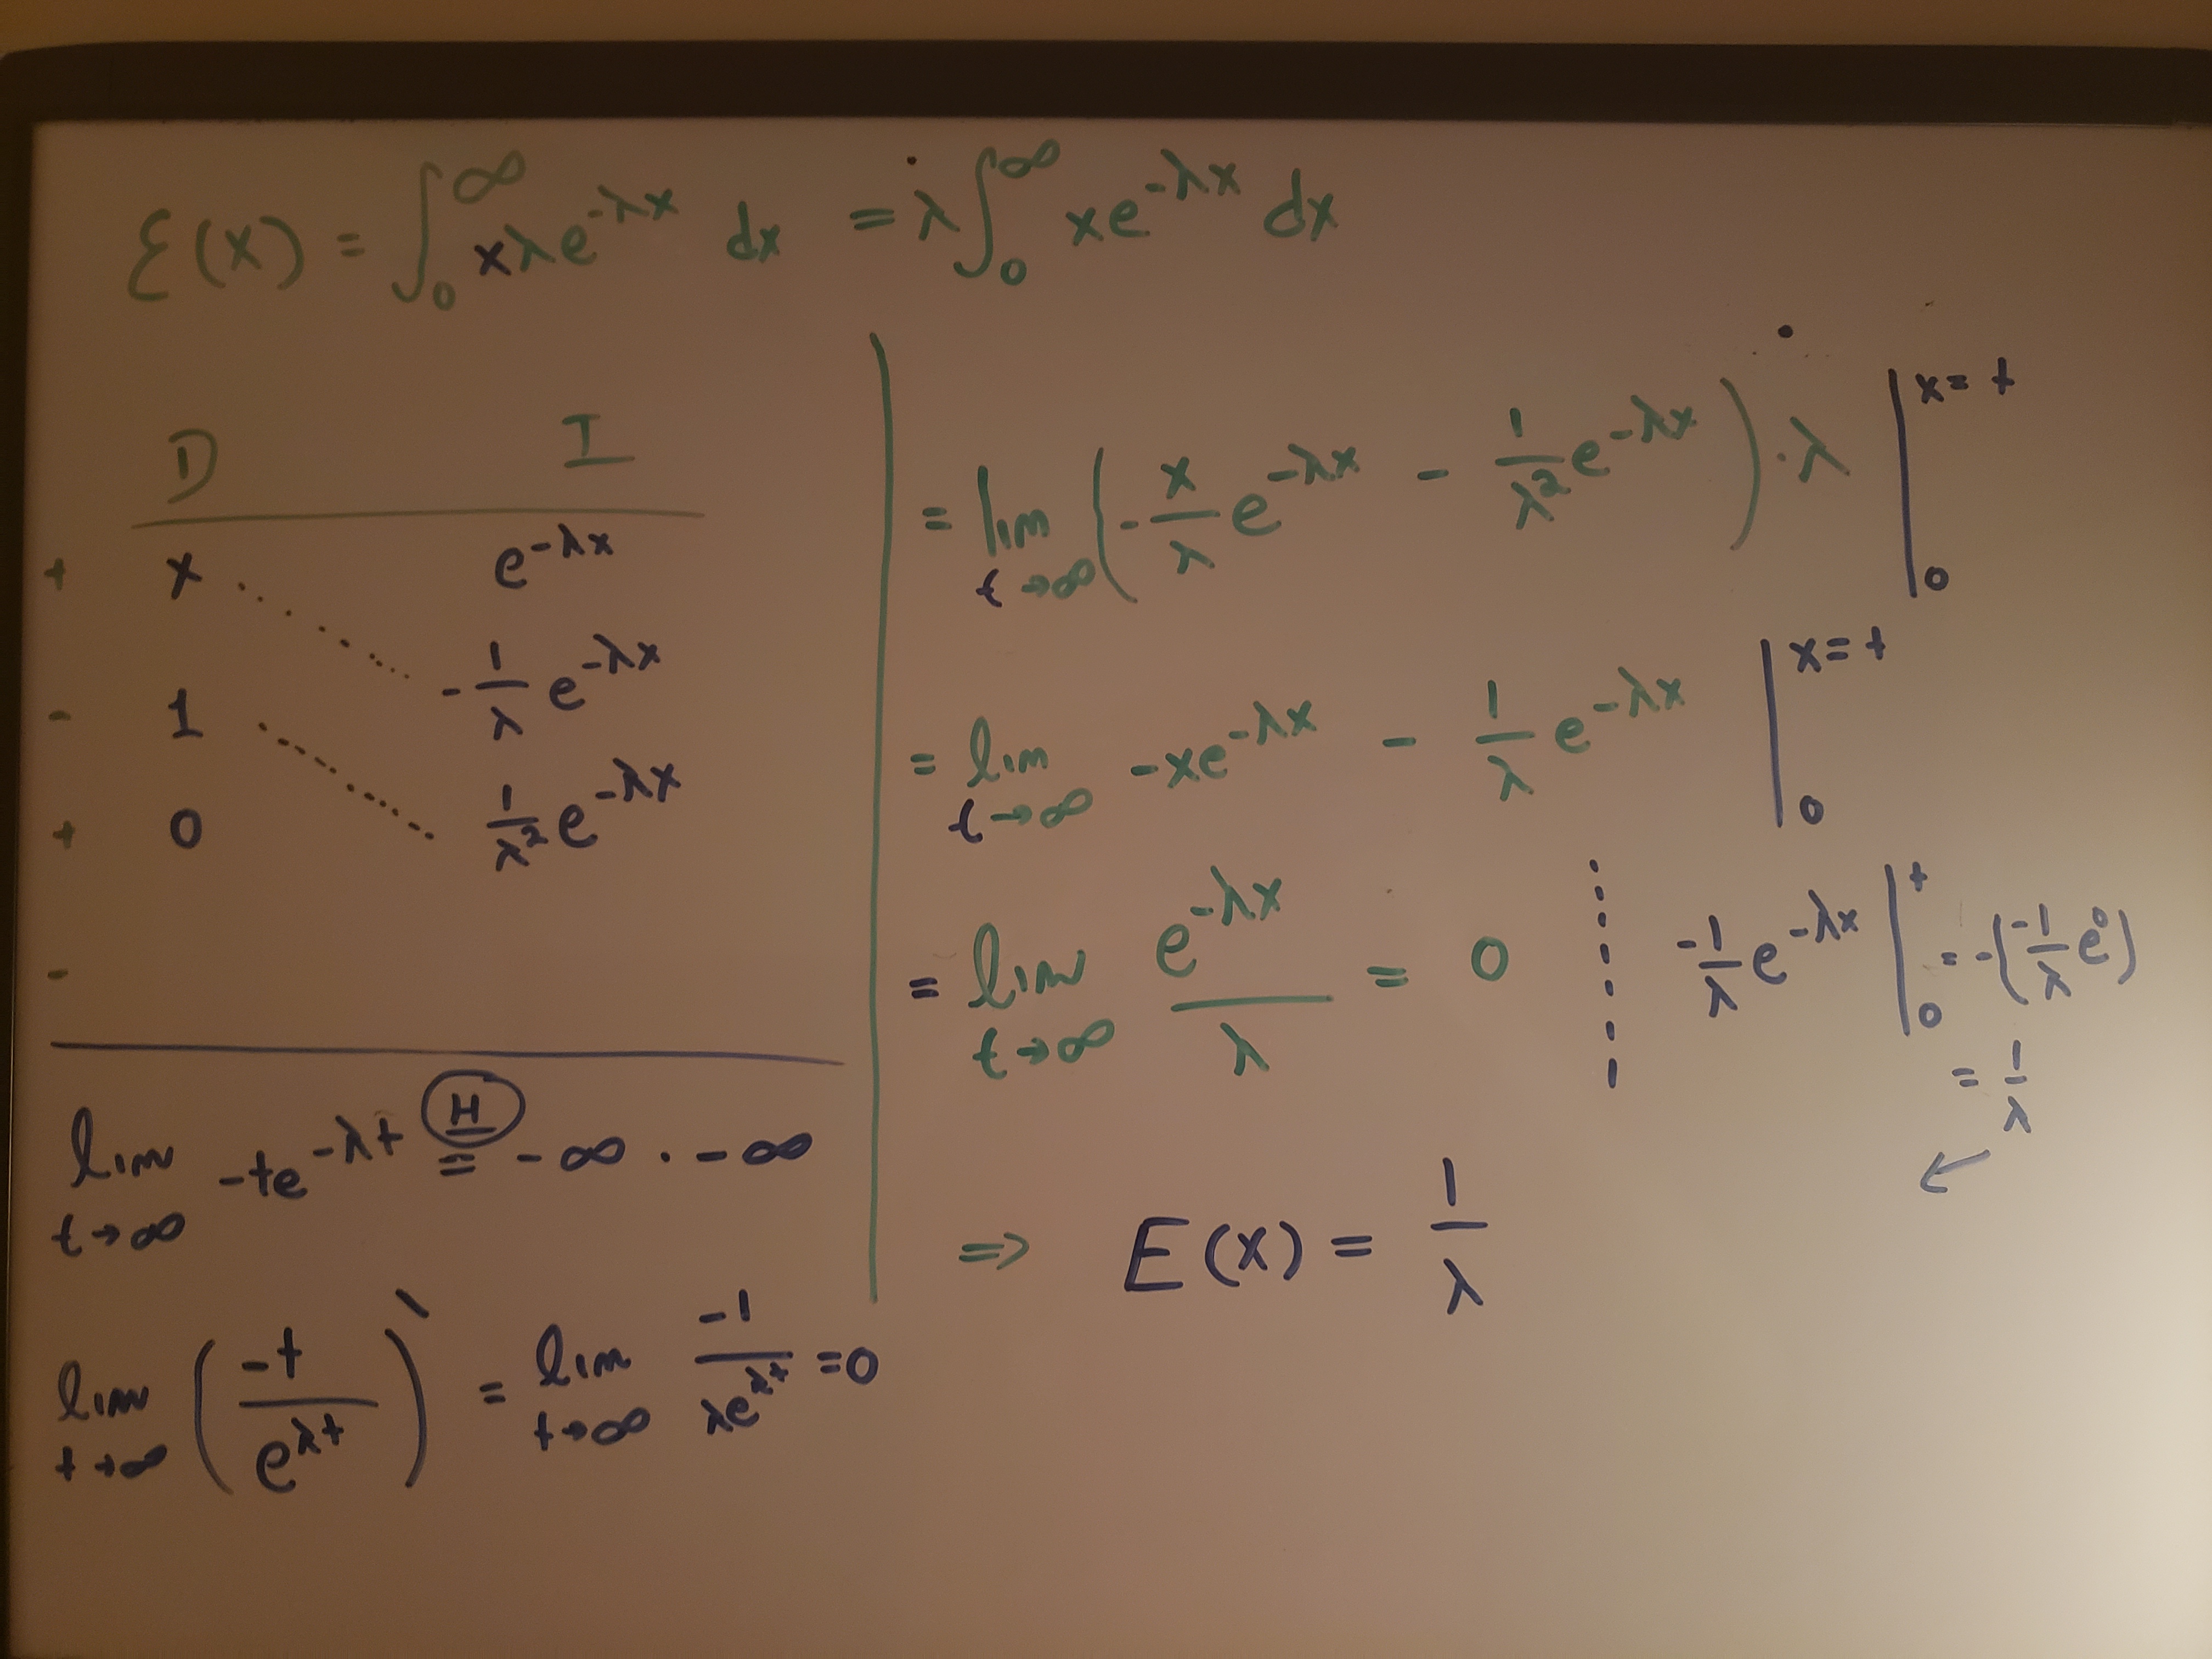 Ɛ(x) = ∫₀^∞ xλe^{-λx} dx = λ∫₀^∞ xe^{-λx} dx
D I
+ x e^{-λx}
- 1 -\frac{1}{λ} e^{-λx}
+ 0 \frac{1}{λ²} e^{-λx}
-
lim_{t→∞} -te^{-λt} Ⓗ = -∞ · -∞
lim_{t→∞} (\frac{-t}{e^{λt}})' = lim_{t→∞} \frac{-1}{λe^{λt}} = 0
= lim_{t→∞} (-\frac{x}{λ} e^{-λx} - \frac{1}{λ²} e^{-λx}) · λ |_0^{x=t}
= lim_{t→∞} -xe^{-λx} - \frac{1}{λ} e^{-λx} |_0^{x=t}
= lim_{t→∞} \frac{e^{-λx}}{λ} = 0
\frac{-1}{λ} e^{-λx} |_0^t = -(\frac{-1}{λ} e^0)
= \frac{1}{λ}
←
⇒ E(x) = \frac{1}{λ}